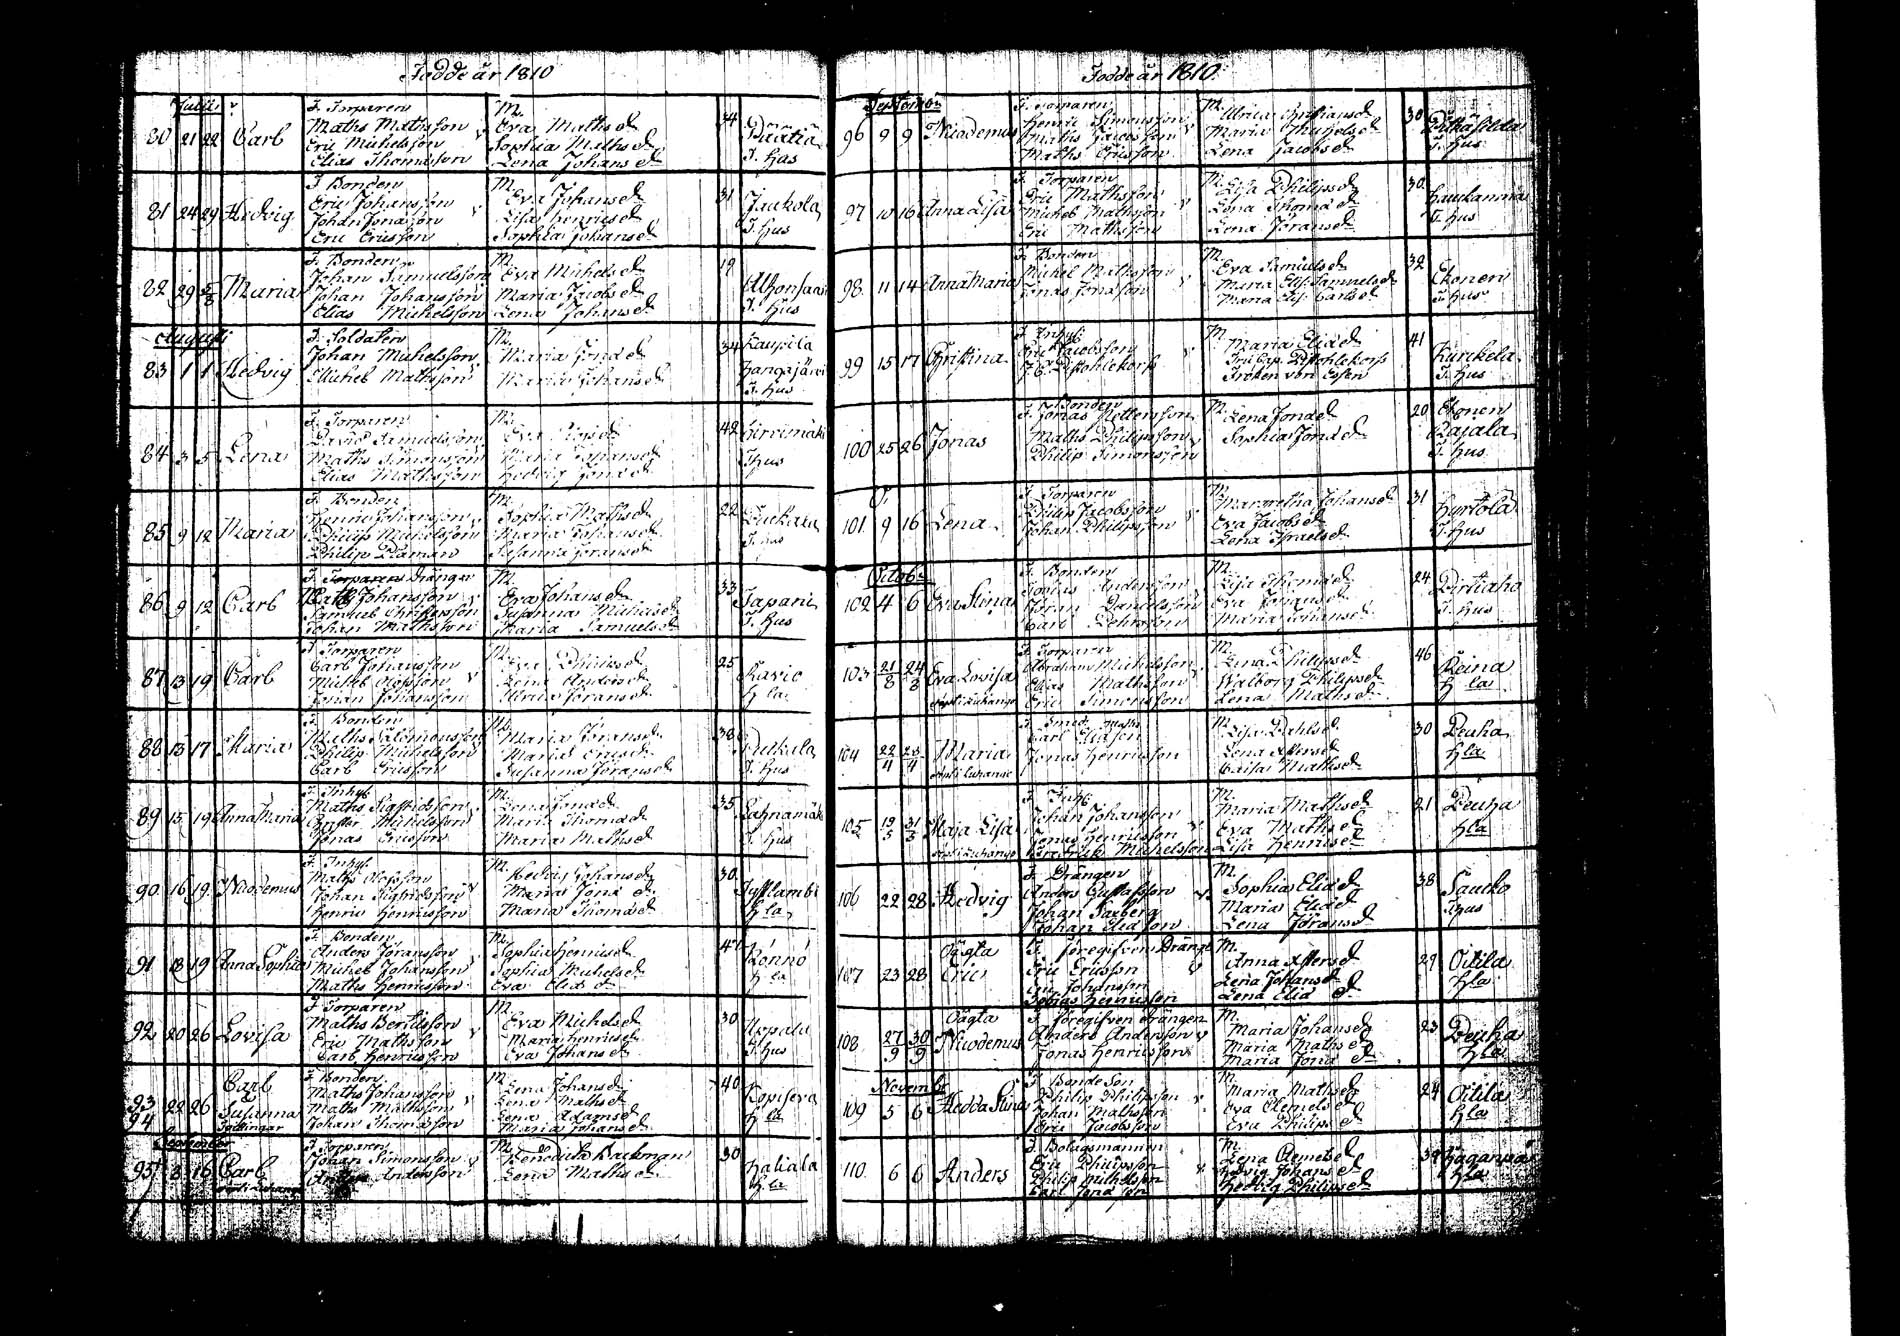 Fodde år 1810
Julii
80 21 22 Carl
F. Torparen
Maths Mathsson
Eric Michelsson
Elias Thomasson
M.
Eva Mathsd
Sophia Mathsd
Lena Johansd
34
T. hus
81 24 29 Hedvig
F. Bonden
Eric Johansson
Johan Jonasson
Eric Ericsson
M.
Eva Johansd
Lisa Henricsd
Sophia Johansd
31
Jaukola
T. hus
82 29 Maria
F. Bonden
Johan Simuelsson
Johan Johansson
Elias Michelsson
M.
Eva Michelsd
Maria Jacobsd
Lena Johansd
19
T. hus
Augusti
83 1 1 Hedvig
F. Soldaten
Johan Michelsson
Michel Mathsson
M.
Maria Jonæd
Maria Johansd
34
Kaupila
T. hus
84 3 5 Lena
F. Torparen
David Samuelsson
Maths Simonsson
Elias Mathsson
M.
Maria Johansd
Hedvig Jonæd
42
T. hus
85 9 12 Maria
F. Bonden
Henric Johansson
Philip Michelsson
Philip
M.
Sophia Mathsd
Maria Johansd
Susanna Jöransd
22
T. hus
86 9 12 Carl
F. Torparen Drängen
Johansson
Samuel Christersson
Johan Mathsson
M.
Eva Johansd
Susanna Mathsd
Maria Samuelsd
33
Tapani
T. hus
87 13 19 Carl
F. Torparen
Carl Johansson
Michel Olofsson
Johan Johansson
M.
Lena Andersd
Ulrica Jöransd
25
Kavio
h la
88 13 17 Maria
F. Bonden
Maths Salomonsson
Philip Michelsson
Carl Ericsson
M.
Maria Jöransd
Maria Ericsd
Susanna Jöransd
38
T. hus
89 15 19 Anna Maria
F. Inhys
Maths Sigfridsson
Christer Michelsson
Jonas Ericsson
M.
Lena Jonæd
Maria Thomæd
Maria Mathsd
35
Lahnamäki
T. hus
90 16 19 Nicodemus
F. Inhys.
Maths Olofsson
Johan Sigfridsson
Henric Henricsson
M.
Hedvig Johansd
Maria Jonæ d
Maria Thomæd
30
h la
91 18 19 Anna Sophia
F. Bonden
Anders Jöransson
Michel Johansson
Maths Henricsson
M.
Sophia Henricsd
Sophia Michelsd
Eva Eliæ d
Könnö
h la
92 20 26 Lovisa
F. Torparen
Maths Bertilsson
Eric Mathsson
Carl Henricsson
M.
Eva Michelsd
Maria Henricsd
Eva Johansd
30
Uppala
T. hus
93
94 22 26
Carl
Susanna
Tvillingar
F. Bonden
Maths Johansson
Maths Mathsson
Johan Thomasson
M.
Lena Johansd
Lena Mathsd
Lena Adamsd
Maria Johansd
40
h la
September
95 8 16 Carl
F. Torparen
Johan Simonsson
Andersson
M.
Backman
Lena Mathsd
30
Kaliala
h la
Fodde år 1810
September
96 9 9 Nicodemus
F. Torparen
Henric Simonsson
Maths Jacobsson
Maths Ericsson
M.
Ulrica Christiansd
Maria Michelsd
Lena Jacobsd
30
T. hus
97 10 16 Anna Lisa
F. Torparen
Eric Mathsson
Michel Mathsson
Eric Mathsson
M.
Lisa Philipsd
Lena Thomæ d
Lena Jöransd
30
T. hus
98 11 14 Anna Maria
F. Bonden
Michel Mathsson
Jonas Jonasson
M.
Eva Samuelsd
Maria Elis. Samuelsd
Maria Elis. Carlsd
32
Ekonen
T. hus
99 15 17 Christina
F. Inhys.
Eric Jacobsson
M.
Maria Eliæd
Froken von Essen
41
Kurckela
T. hus
100 25 26 Jonas
F. Bonden
Jonas Pettersson
Maths Philipsson
Philip Simonsson
M.
Lena Jonæd
Sophia Jonæ d
20
Ekonen
Rajala
T. hus
101 9 16 Lena
F. Torparen
Philip Jacobsson
Johan Philipsson
M.
Margretha Johansd
Eva Jacobsd
Lena Israelsd
31
Hyrtölä
T. hus
Octob:
102 4 6 Eva Stina
F. Bonden
Andersson
Jöran Danielsson
Carl Pehrsson
M.
Lisa Thomæd
Eva Jöransd
Maria Johansd
24
Pirttiaho
T. hus
103 21/8 24/8 Eva Lovisa
F. Torparen
Abraham Michelsson
Elias Mathsson
Eric Simonsson
M.
Lena Philipsd
Walborg Philipsd
Lena Mathsd
46
Reina
h la
104 Maria
F. Smed
Carl Eliasson
Jonas Henricsson
M.
Lisa Dahlsd
Caisa Mathsd
30
Peuha
h la
105 19/5 Maja Lisa
F. Inhys
Johan Johansson
Jonas Henricsson
Fredrick Michelsson
M.
Maria Mathsd
Eva Mathsd
Lisa Henricsd
21
Peuha
h la
106 22 28 Hedvig
F. Drängen
Anders Gustafsson
Johan Saxberg
Johan Eliasson
M.
Sophia Eliæd
Maria Eliæd
Lena Jöransd
38
Saucko
T. hus
107 23 28
Oägta
Eric
F. föregifven Dränge
Eric Ericsson
Eric Johansson
Tobias Henricsson
M.
Lena Johansd
Lena Eliæ d
29
Oitila
h la
108 27/9 30/9
Oägta
Nicodemus
F. föregifven Drängen
Anders Andersson
Jonas Henricsson
M.
Maria Johansd
Maria Mathsd
Maria Jonæ d
23
Peuha
h la
Novemb:
109 5 6 Hedda Stina
F. Bonde Son
Philip Philipsson
Johan Mathsson
Eric Jacobsson
M.
Maria Mathsd
Eva Clemetsd
Eva Philipsd
24
Oitila
h la
110 6 6 Anders
F. Bolagsmannen
Eric Philipsson
Philip Michelsson
Carl Jonasson
M.
Lena Clemetsd
Hedvig Johansd
Hedvig Philipsd
39
h la